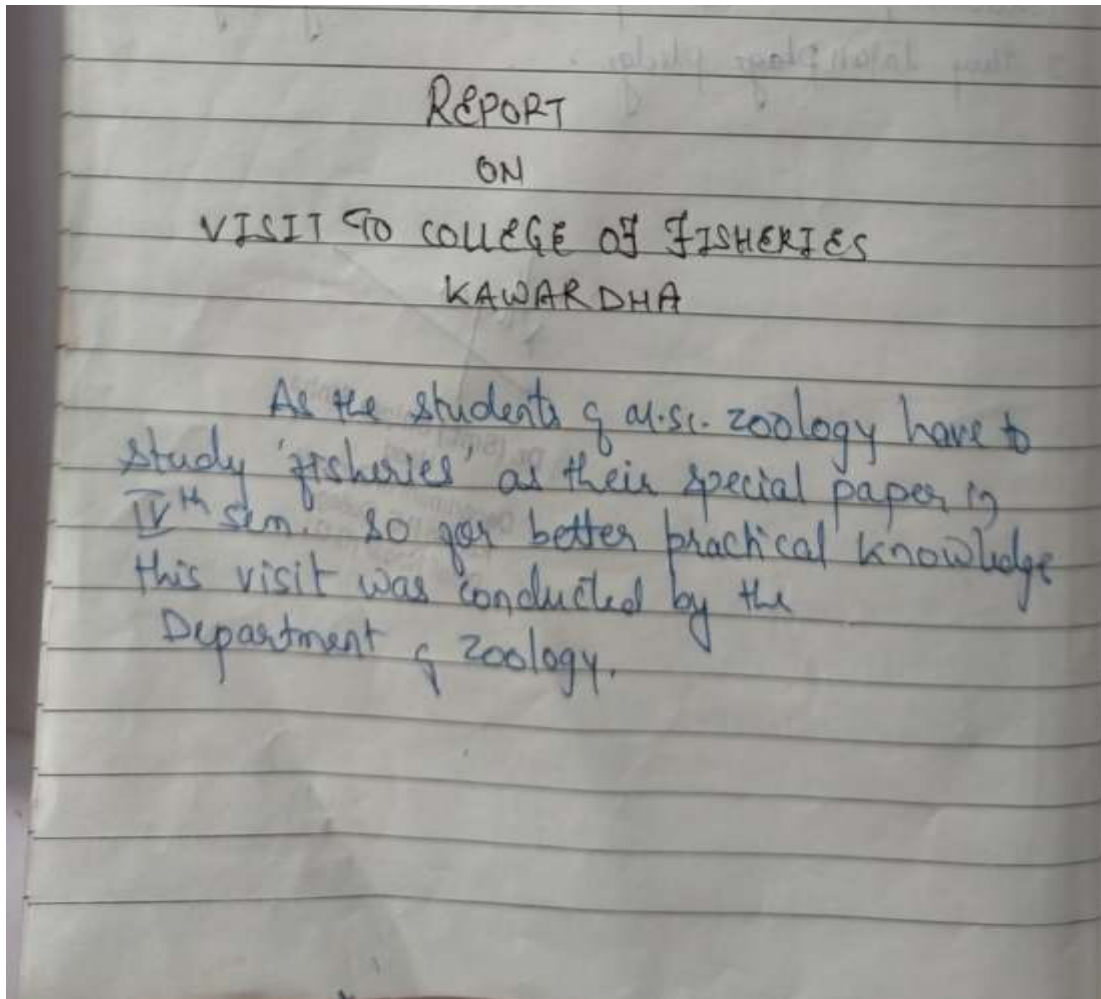 REPORT
ON
VISIT TO COLLEGE OF FISHERIES
KAWARDHA
As the students of M.Sc. Zoology have to
study 'fisheries' as their special paper in
IVth sem. So for better practical knowledge
this visit was conducted by the
Department of Zoology.